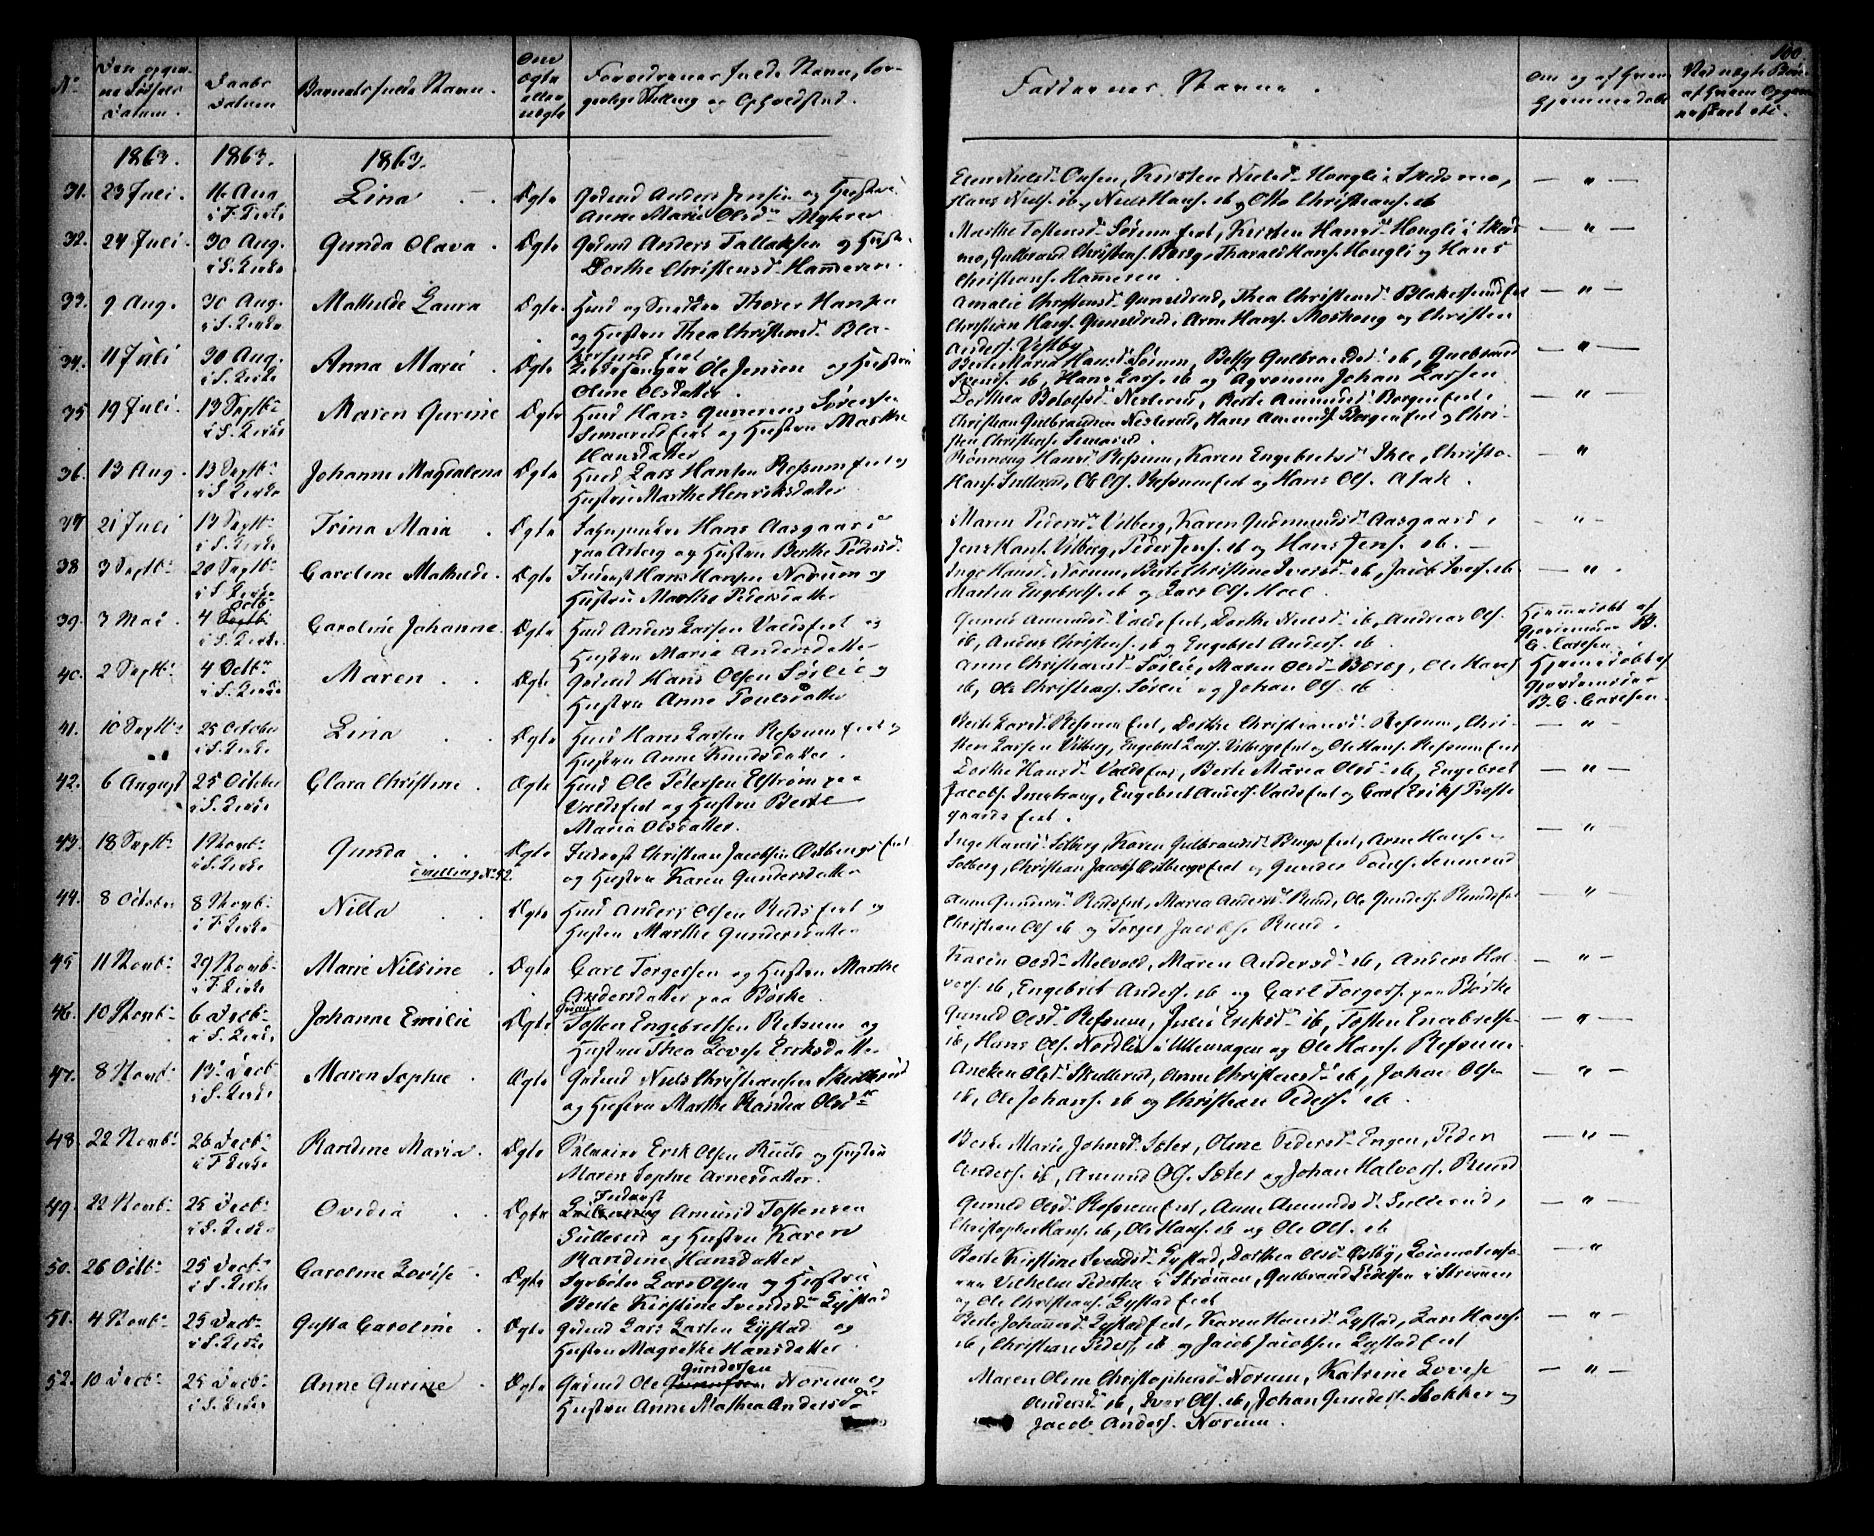 100.
No
Den opgivne Fødsels Datum.
Daabs Datum
Barnets fulde Navn.
Om Ægte eller uægte
Forældrenes fulde Navn, borgerlige Stilling og Opholdsted.
Faddernes Navne.
Om og af Hvem Hjemmedøbt
1863. 1863. 1863.
31. 23 Juli. 16 Aug i F. Kirke Lina Ægte Gdmd Anders Jensen og Hustru
Anne Marie Olsd
Hans Niels. ib, Niels Hans. ib og Otto Christians. ib
32. 24 Juli. 30 Aug. i S. Kirke Gunda Olava Ægte Gdmd Anders Tallaksen og Hust.
Dorthe Christensd Hammeren.
Marthe Tostensd Sørum Eiet, Kirsten Hansd Hongli i Skedsmo, Gulbrand Christens. Berg, Tharald Hans. Hongli og Hans
Christians. Hammeren.
33. 9 Aug. 30 Aug. i S. Kirke Mathilde Laura Ægte Huusmd og Snedker Thorer Hansen
og Hustru Thea Christiansd Blakersund Eiet
Christian Hans. Gunildrud, Arne Hans. Moshoug og Christen
Anders. Vestby
34. 11 Juli 30 Aug. i S. Kirke Anna Marie Ægte Kirkesanger Ole Jensen og Hustru
Oline Olsdatter.
Berte Marie Hansd Sørum, Betsy Gulbrandsd ib, Gulbrand
Svends. ib, Hans Lars. ib og Agronom Johan Larsen
35 19 Juli. 13 Septb. i S. Kirke Maren Gurine Ægte Huusmd Hans Gunerius Sørensen
Simarud Eiet og Hustru Marthe
Hansdatter
Christian Gulbrandsen Nesterud, Hans Amunds. Borgen Eiet og Christen Christians. Simarud.
36. 13 Aug. 13 Septb. i S. Kirke Johanne Magdalena Ægte Huusmd Lars Hansen Refsum Eiet og
Hustru Marthe Henriksdatter
Rønnoug Hansd Refsum, Karen Engebretsd Ihle, Christo.
Hans. Sullerud, Ole Ols. Refsum Eiet og Hans Ols. Asak.
37 21 Juli 13 Septb. i S. Kirke Trina Maia Ægte Hans Aasgaard
paa Asberg og Hustru Berthe Pedersd.
Maren Pedersd Vilberg, Karen Gudmundsd Aasgaard,
Jens Hans. Vilberg, Peder Jens. ib og Hans Jens. ib.
38 3 Septb. 20 Septb. i S. Kirke Caroline Mathilde. Ægte Inderst Hans Hansen Norum og
Hustru Marthe Pedersdatter
Inge Hansd Norum, Berte Christine Iversd ib, Jacob Ivers. ib
Martin Engebrets. ib og Lars Ols. Hoel
39. 3 Mai. 4 Octb. i S. Kirke. Caroline Johanne. Ægte Huusmd Anders Larsen Valds Eiet og
Hustru Maria Andersdatter
Gunild Amundsd Valds Eiet, Dorthe Nielsd ib, Andreas Ols.
ib, Anders Christens. ib og Engebret Anders. ib
Hjemmedøbt af
Gjordemoder B.
C. Carlsen.
40. 2 Septb. 4 Octb. i S. Kirke Maren Ægte Gdmd Hans Olsen Sørlie og
Hustru Anne Poulsdatter
Anne Christiansd Sørlie, Maren Olsd Berg, Ole Hans.
ib, Ole Christians. Sørlie og Johan Ols. ib.
Hjemmedøbt af
Gjordemoder
B. C. Carlsen.
41. 10 Septb. 25 October i S. Kirke Lina Ægte Huusmd Hans Larsen Refsum Eiet og
Hustru Anne Knudsdatter.
Berte Larsd Refsum Eiet, Dorthe Christiansd Refsum, Christen Larsen Vilberg, Engebret Lars. Vilbergs Eiet og Ole Hans. Refsum Eiet
42. 6 August 25 October i S. Kirke Clara Christine Ægte Huusmd Ole Petersen Elstrøm paa
Valds Eiet og Hustru Berte
Maria Olsdatter.
Dorthe Hansd Valds Eiet, Berte Maria Olsd ib, Engebret
Jacobs. Imshoug, Engebret Anders. Valds Eiet og Carl Eriks. Prestegaards Eiet.
43. 18 Septb. 1 Novb. i S. Kirke Gunda Ægte Inderst Christian Jacobsen Østbergs Eiet
og Hustru Karen Gundersdatter
Tvilling No 52.
Solberg, Christian Jacobs. Østbergs Eiet og Gunder
44. 8 October 8 Novb. i F. Kirke Nilla Ægte Huusmd Anders Olsen Ruds Eiet og
Hustru Marthe Gundersdatter
Anne Gundersd Ruds Eiet, Maria Andersd Rud, Ole Gunders. Ruds Eiet
Christian Ols. ib og Torger Jacobs. Rud.
45 11 Novb. 29 Novb. i F. Kirke Marie Nilsine Ægte Carl Torgersen og Hustru Marthe
Andersdatter paa Børke.
Karen Olsd Melvold, Maren Andersd ib, Anders Halvors. ib, Engebrit Anders. ib og Carl Torgers. paa Børke
46. 10 Novb. 6 Decb. i S. Kirke Johanne Emilie Ægte Tosten Engebretsen Refsum og
Hustru Thea Lovise Eriksdatter
Gunild Olsd Refsum, Julie Eriksd ib, Tosten Engebrets.
ib, Hans Ols. Nordlie i Ullensagen og Ole Hans. Refsum
47. 8 Novb. 13 Decb. i S. Kirke Maren Sophie Ægte Gdmd Niels Christiansen Skedlerud
og Hustru Marthe Randea Olsd
Aneken Olsd Skedlerud, Anne Christensd ib, Johan Ols.
ib, Ole Johans. ib og Christian Peders. ib.
48. 22 Novb. 26 Decb. i F. Kirke Randine Maria. Ægte Erik Olsen Ruud og Hustru
Maren Sophie Arnesdatter.
Berte Marie Johnsd Sæter, Oline Pedersd Engen, Peder
Anders. ib, Amund Ols. Sæter og Johan Halvors. Ruud
49. 22 Novb. 25 Decb. i S. Kirke Ovidia Ægte Inderst Amund Tostensen
Sullerud og Hustru Karen
Randine Hansdatter
Gunild Olsd Refsum Eiet, Anne Amundsd Sullerud,
Christopher Hans. ib, Ole Hans. ib og Ole Ols. ib
50. 26 Octb. 25 Decb. i S. Kirke Caroline Lovise Ægte Lars Olsen og Hustru
Berte Kirstine Svendsd Lystad
Berte Kirstine Svendsd Lystad, Dorthea Olsd Østby, Vilhelm Pedersen i Strømmen, Gulbrand Pedersen i Strømmen
og Ole Christians. Lystad Eiet
51. 4 Novb. 25 Decb. i S. Kirke Gusta Caroline Ægte Gdmd Lars Larsen Lystad og
Hustru Magrethe Hansdatter
Berte Johannesd Lystad Eiet, Karen Hansd Lystad, Lars Hans.
ib, Christian Peders. ib og Jacob Jacobsen Lystad Eiet
52. 10 Decb. 25 Decb. i S. Kirke Anne Gurine Ægte Gdmd Ole Gundersen Norum og
Hustru Anne Mathea Andersd
Maren Oline Christophersd Norum, Katrine Lovise
Andersd ib, Iver Ols. ib, Johan Gunders. Stokker og
Jacob Anders. Norum.